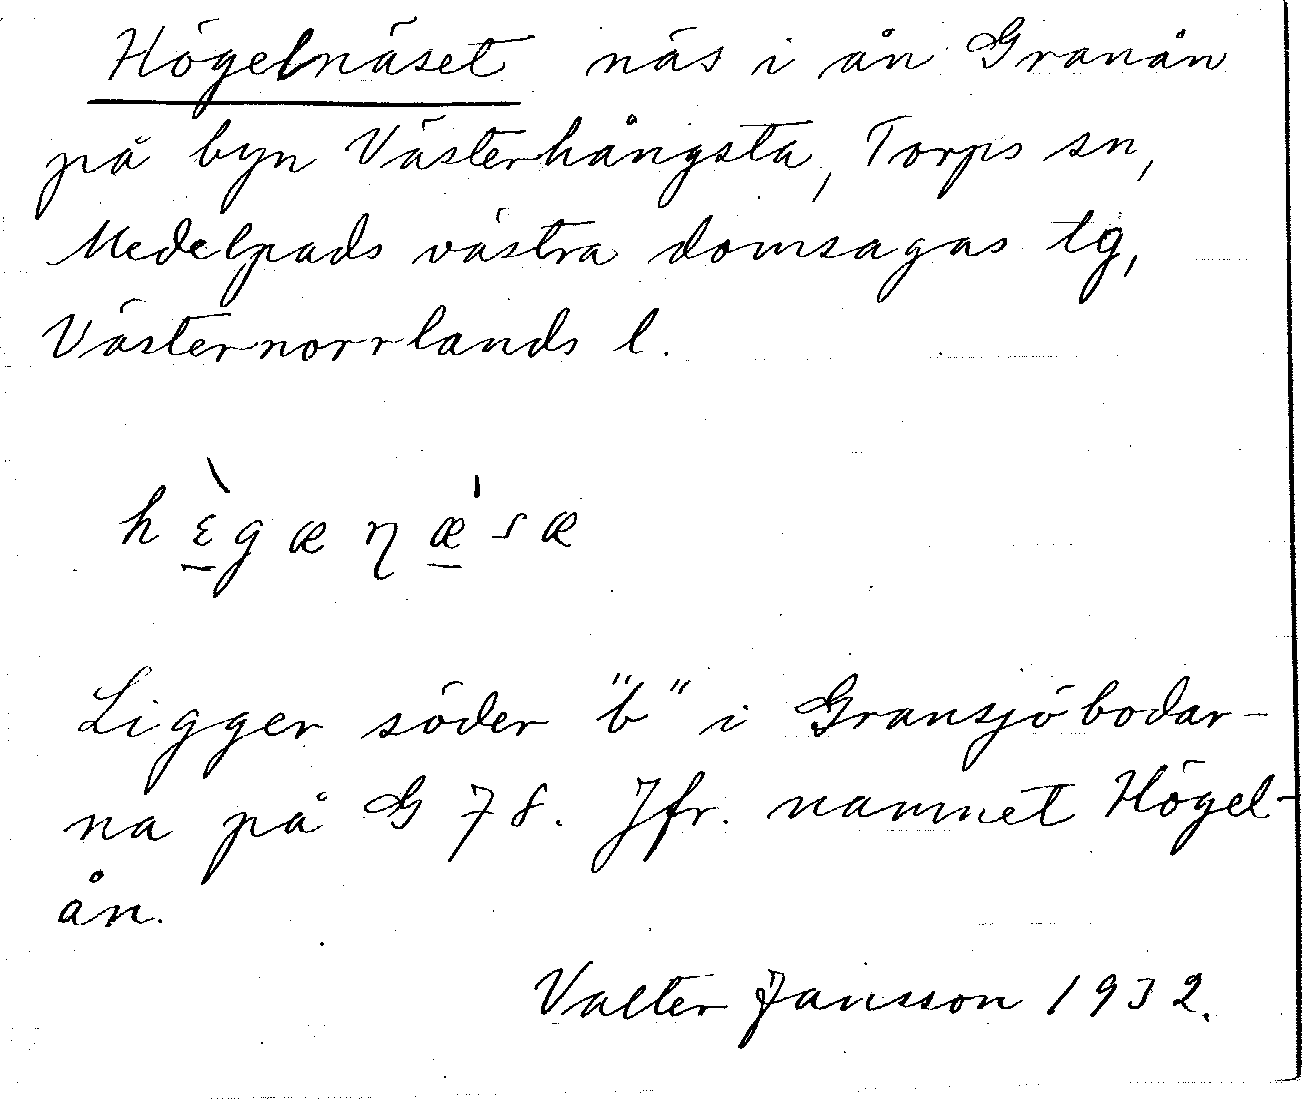 Högelnäset näs i ån Granån
på byn Västerhångsta, Torps sn,
Medelpads västra domsagas tg,
Västernorrlands l.
hɛ̀gæŋæ'sæ
Ligger söder "b" i Gransjöbodar-
na på G 78. Jfr. namnet Högel-
ån.
Valter Jansson 1932.